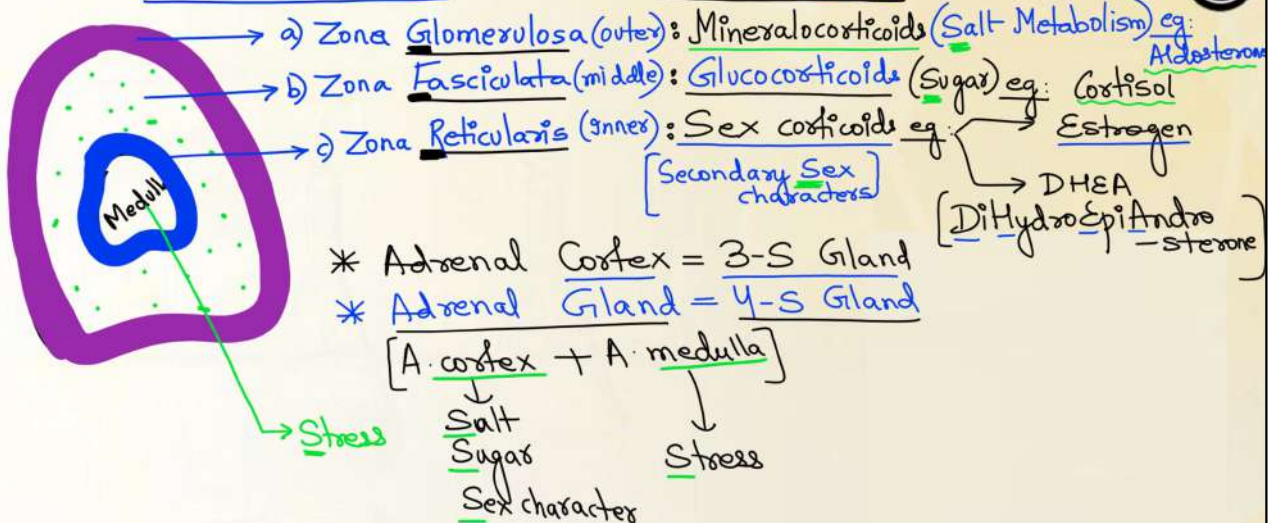 a) Zona Glomerulosa (outer): Mineralocorticoids (Salt Metabolism) eg: Aldosterone
b) Zona Fasciculata (middle): Glucocorticoids (Sugar) eg: Cortisol
c) Zona Reticularis (inner): Sex corticoids eg: Estrogen
[Secondary Sex characters]
DHEA
[DiHydroEpiAndro-sterone]
Medull
* Adrenal Cortex = 3-S Gland
* Adrenal Gland = 4-S Gland
[A. cortex + A. medulla]
Stress
Salt
Sugar
Sex character
Stress